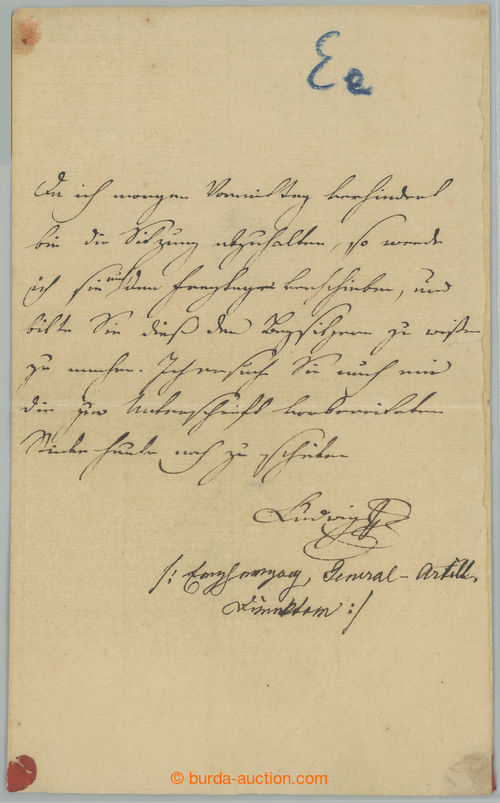 Ea
Da ich morgen Vormittag verhindert
bin die Sitzung abzuhalten, so werde
ich sie auf den Freytag verschieben, und
bitte Sie dieß den Beysitzern zu wissen
zu machen. Ich ersuche Sie auch mir
die zur Unterschrift vorbereiteten
Stücke heute noch zu schicken
Ludwig
/: Erzherzog, General-Artill.
Direktor :/
© burda-auction.com